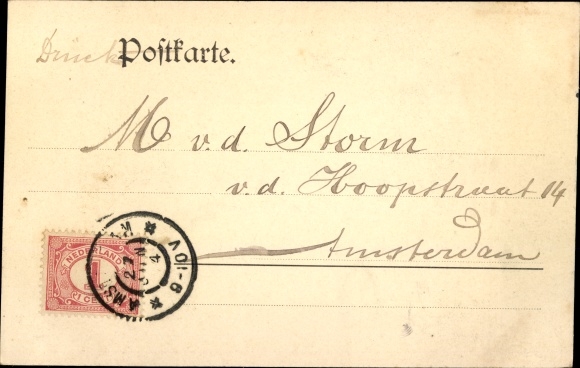 Druck Postkarte.
M v.d. Storm
v.d. Hoopstraat 14
Amsterdam
NEDERLAND
1
CENT
AMST
9-10V